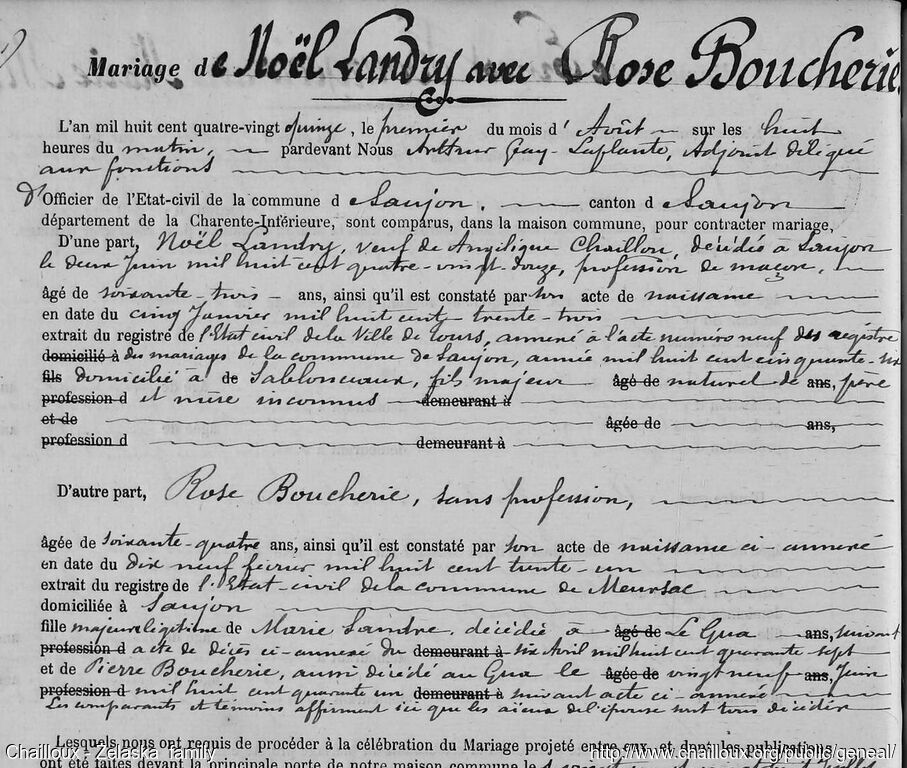 Mariage de Noël Landry avec Rose Boucherie.
L'an mil huit cent quatre-vingt quinze, le premier du mois d' Août sur les huit
heures du matin, pardevant Nous Arthur Gay-Laplante, Adjoint délégué
aux fonctions
d'Officier de l'Etat-civil de la commune d Saujon, canton d Saujon
département de la Charente-Inférieure, sont comparus, dans la maison commune, pour contracter mariage,
D'une part, Noël Landry, veuf de Angélique Chaillou, décédée à Saujon
le deux Juin mil huit cent quatre-vingt-douze, profession de maçon,
âgé de soixante-trois ans, ainsi qu'il est constaté par son acte de naissance
en date du cinq Janvier mil huit cent trente-trois
extrait du registre de l'Etat civil de la Ville de Tours, annexé à l'acte numéro neuf des registre
domicilié à des mariages de la commune de Saujon, année mil huit cent cinquante-six
fils domicilié à de Sablonceaux, fils majeur âgé de naturel de ans, père
profession d et mère inconnus demeurant à
et de âgée de ans,
profession d demeurant à
D'autre part, Rose Boucherie, sans profession,
âgée de soixante-quatre ans, ainsi qu'il est constaté par son acte de naissance ci-annexé
en date du dix neuf février mil huit cent trente-un
extrait du registre de l'Etat-civil de la commune de Meursac
domiciliée à Saujon
fille majeure légitime de Marie Landre, décédée à âgé de Le Gua ans, suivant
profession d acte de décès ci-annexé du demeurant à six Avril mil huit cent quarante sept
et de Pierre Boucherie, aussi décédé au Gua le âgée de vingt neuf ans, Juin
profession d mil huit cent quarante un demeurant à suivant acte ci-annexé
Les comparants et témoins affirment ici que les aïeux de l'épouse sont tous décédés
Lesquels nous ont requis de procéder à la célébration du Mariage projeté entre eux et dont les publications
ont été faites devant la principale porte de notre maison commune le
Chailloux - Zelaska family
http://www.chailloux.org/public/geneal/